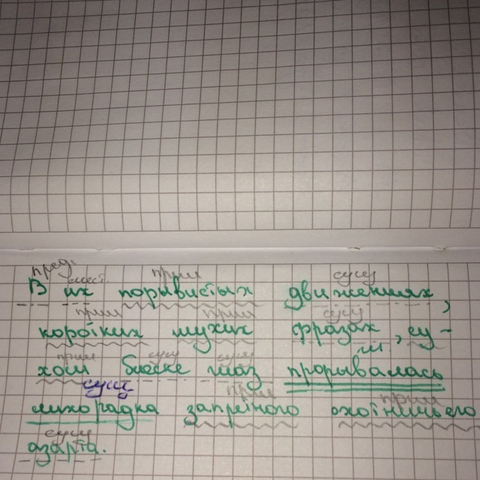 пред. мест прил сущ
В их порывистых движениях,
прил прил сущ
коротких глухих фразах, су-
прил сущ сущ гл.
хом блеске глаз прорывалась
сущ прил прил
лихорадка запретного охотничьего
сущ
азарта.